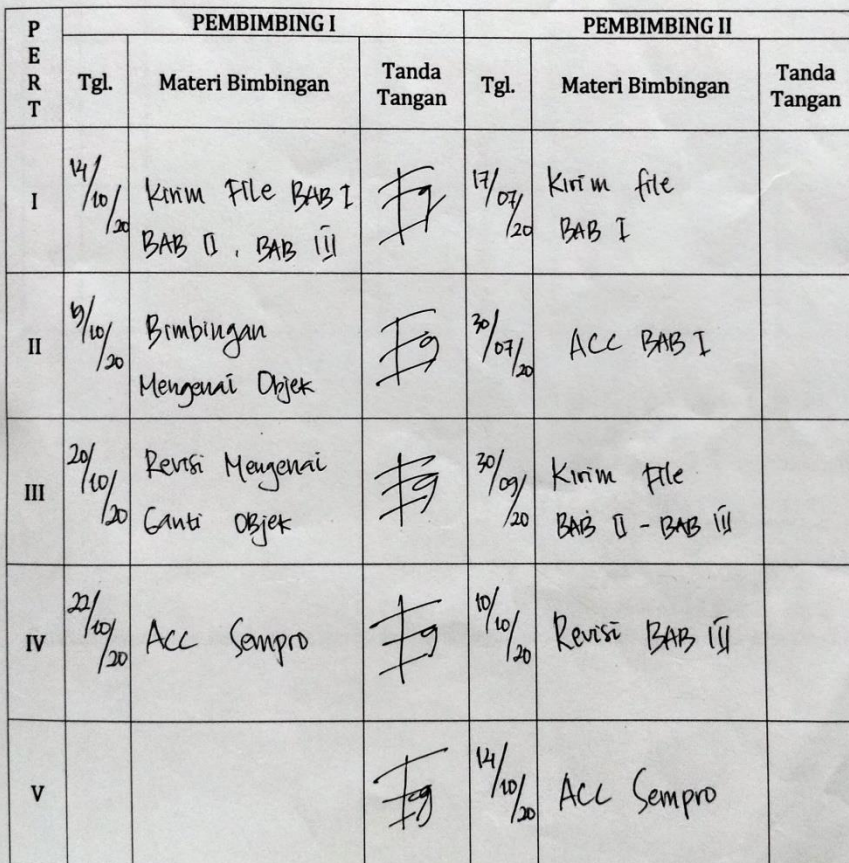 PERT
PEMBIMBING I
PEMBIMBING II
Tgl.
Materi Bimbingan
Tanda
Tangan
Tgl.
Materi Bimbingan
Tanda
Tangan
I
14/10/20
Kirim File BAB I
BAB II, BAB III
17/07/20
Kirim file
BAB I
II
19/10/20
Bimbingan
Mengenai Objek
30/07/20
ACC BAB I
III
20/10/20
Revisi Mengenai
Ganti Objek
30/09/20
Kirim File
BAB II - BAB III
IV
22/10/20
Acc Sempro
10/10/20
Revisi BAB III
V
14/10/20
ACC Sempro